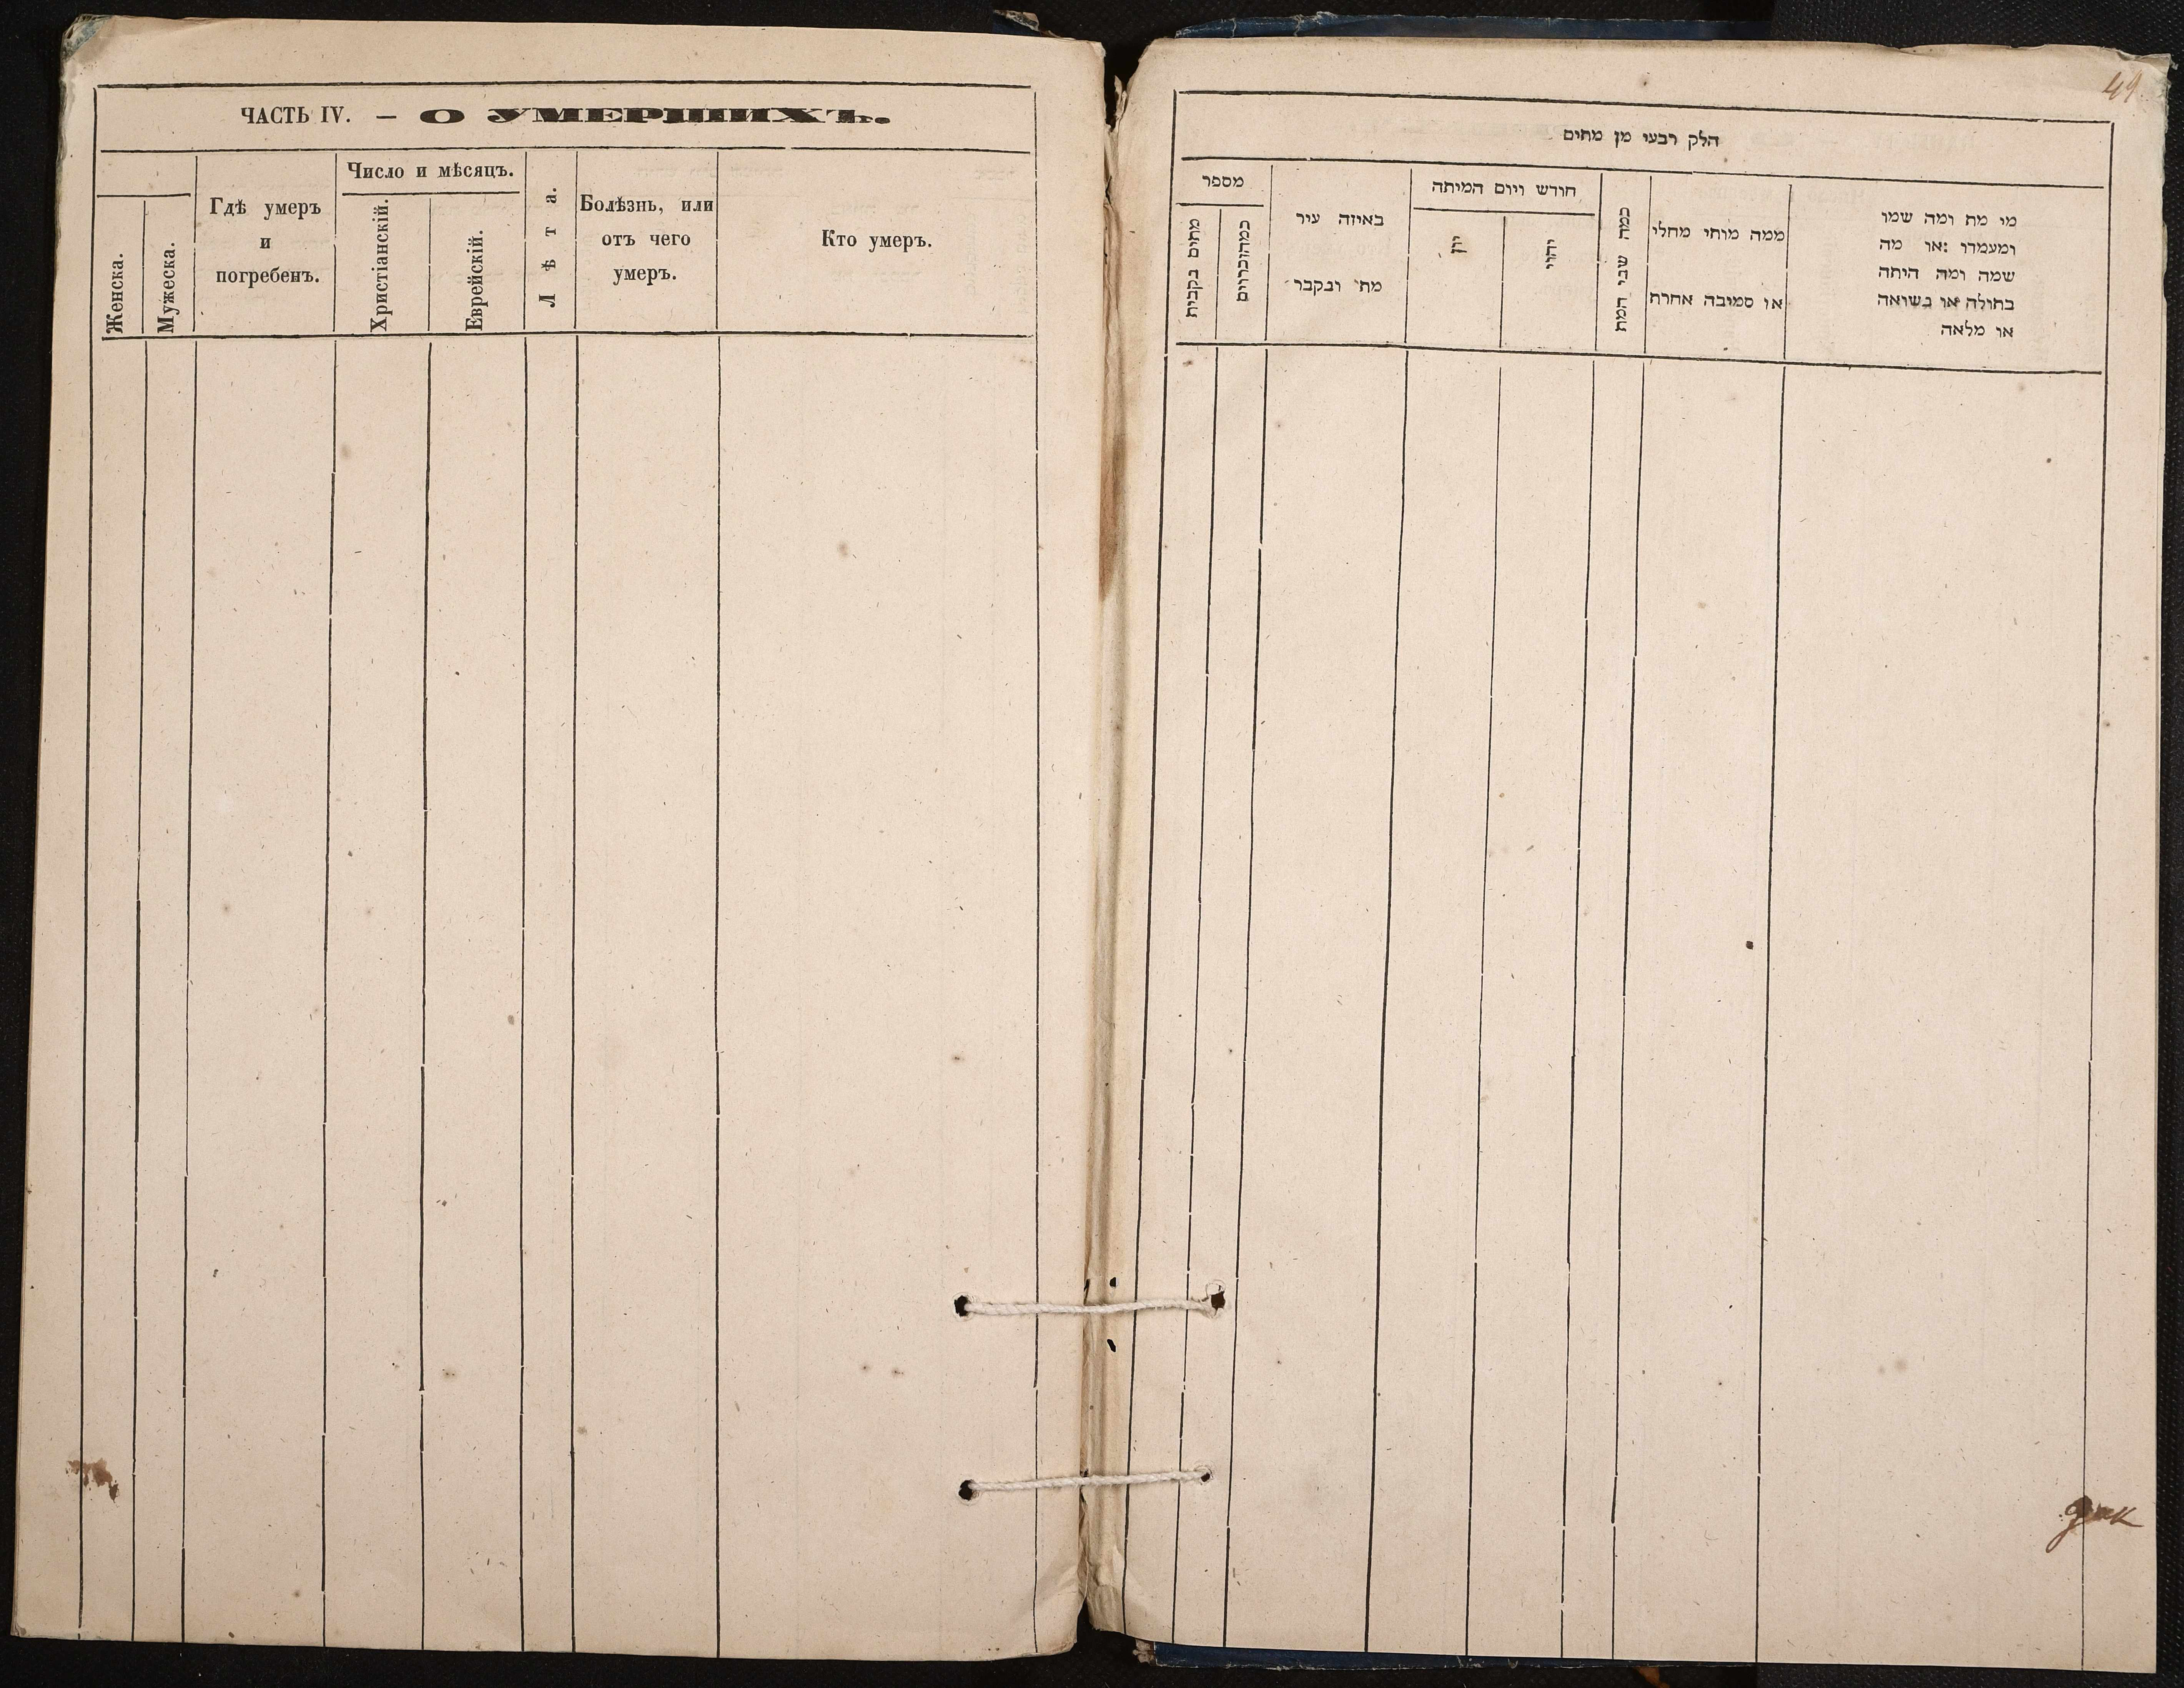 ЧАСТЬ IV. — О УМЕРШИХЪ.
Женска.
Мужеска.
Гдѣ умеръ
и
погребенъ.
Число и мѣсяцъ.
Христіанскій.
Еврейскій.
Лѣта.
Болѣзнь, или
отъ чего
умеръ.
Кто умеръ.
49
הלק רבעי מן מחים
מספר
באיזה עיר
מת ובקבר
חודש ויום המיתה
יהוי
כמה שני המת
ממה מותי מחלי
או סמיבה אחרת
מי מת ומה שמו
ומעמדו :או מה
שמה ומה היתה
בחולה או בשואה
או מלאה